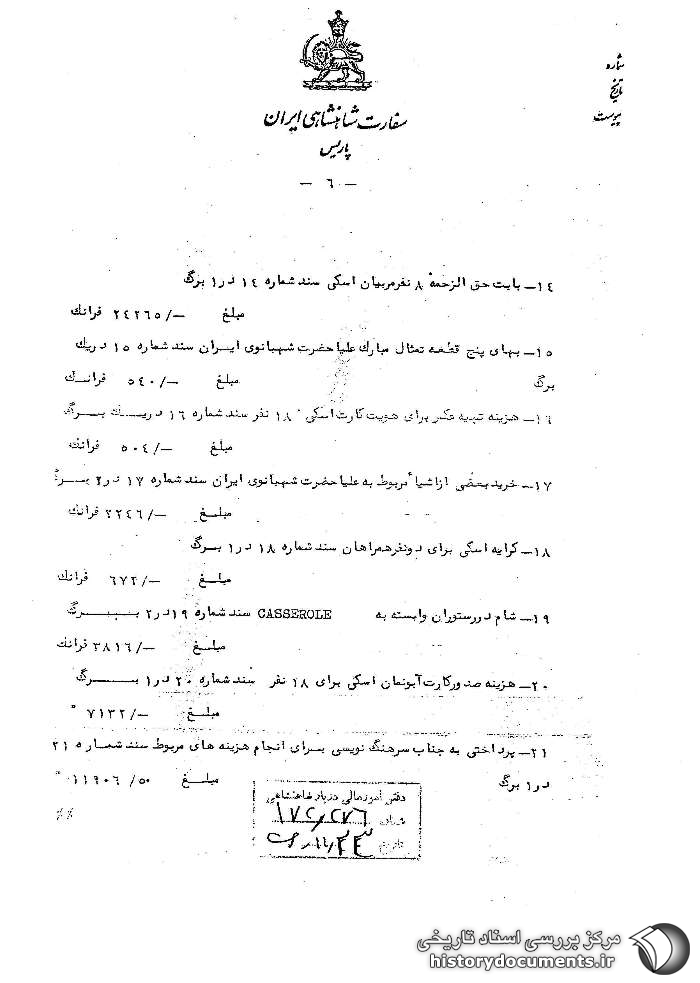 شماره
تاریخ
پیوست
سفارت شاهنشاهی ایران
پاریس
— ٦ —
١٤— بابت حق الزحمه ٨ نفر مربیان اسکی سند شماره ١٤ در ١ برگ
مبلغ —/٢٤٢٦٥ فرانک
١٥— بهای پنج قطعه تمثال مبارک علیاحضرت شهبانوی ایران سند شماره ١٥ در یک
برگ مبلغ —/٥٤٠ فرانک
١٦— هزینه تهیه عکس برای هویت کارت اسکی ١٨ نفر سند شماره ١٦ در یک برگ
مبلغ —/٥٠٤ فرانک
١٧— خرید بعضی از اشیاء مربوط به علیاحضرت شهبانوی ایران سند شماره ١٧ در ٢ برگ
مبلغ —/٢٢٤٦ فرانک
١٨— کرایه اسکی برای دو نفر همراهان سند شماره ١٨ در ١ برگ
مبلغ —/٦٧٢ فرانک
١٩— شام در رستوران وابسته به CASSEROLE سند شماره ١٩ در ٢ برگ
مبلغ —/٣٨١٦ فرانک
٢٠— هزینه صدور کارت آبونمان اسکی برای ١٨ نفر سند شماره ٢٠ در ١ برگ
مبلغ —/٧١٣٢ "
٢١— پرداختی به جناب سرهنگ نویسی برای انجام هزینه های مربوط سند شماره ٢١
در ١ برگ مبلغ ٥٠/١١٩٠٦ "
دفتر امور مالی دربار شاهنشاهی
شماره ١٧٢/٢٧٦
تاریخ
مرکز بررسی اسناد تاریخی
historydocuments.ir